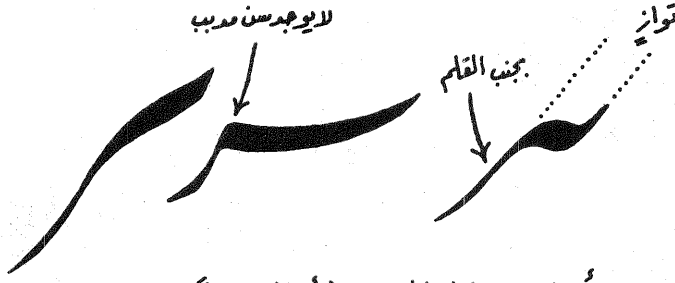 لا يوجد سن مدبب
توازٍ
بجنب القلم